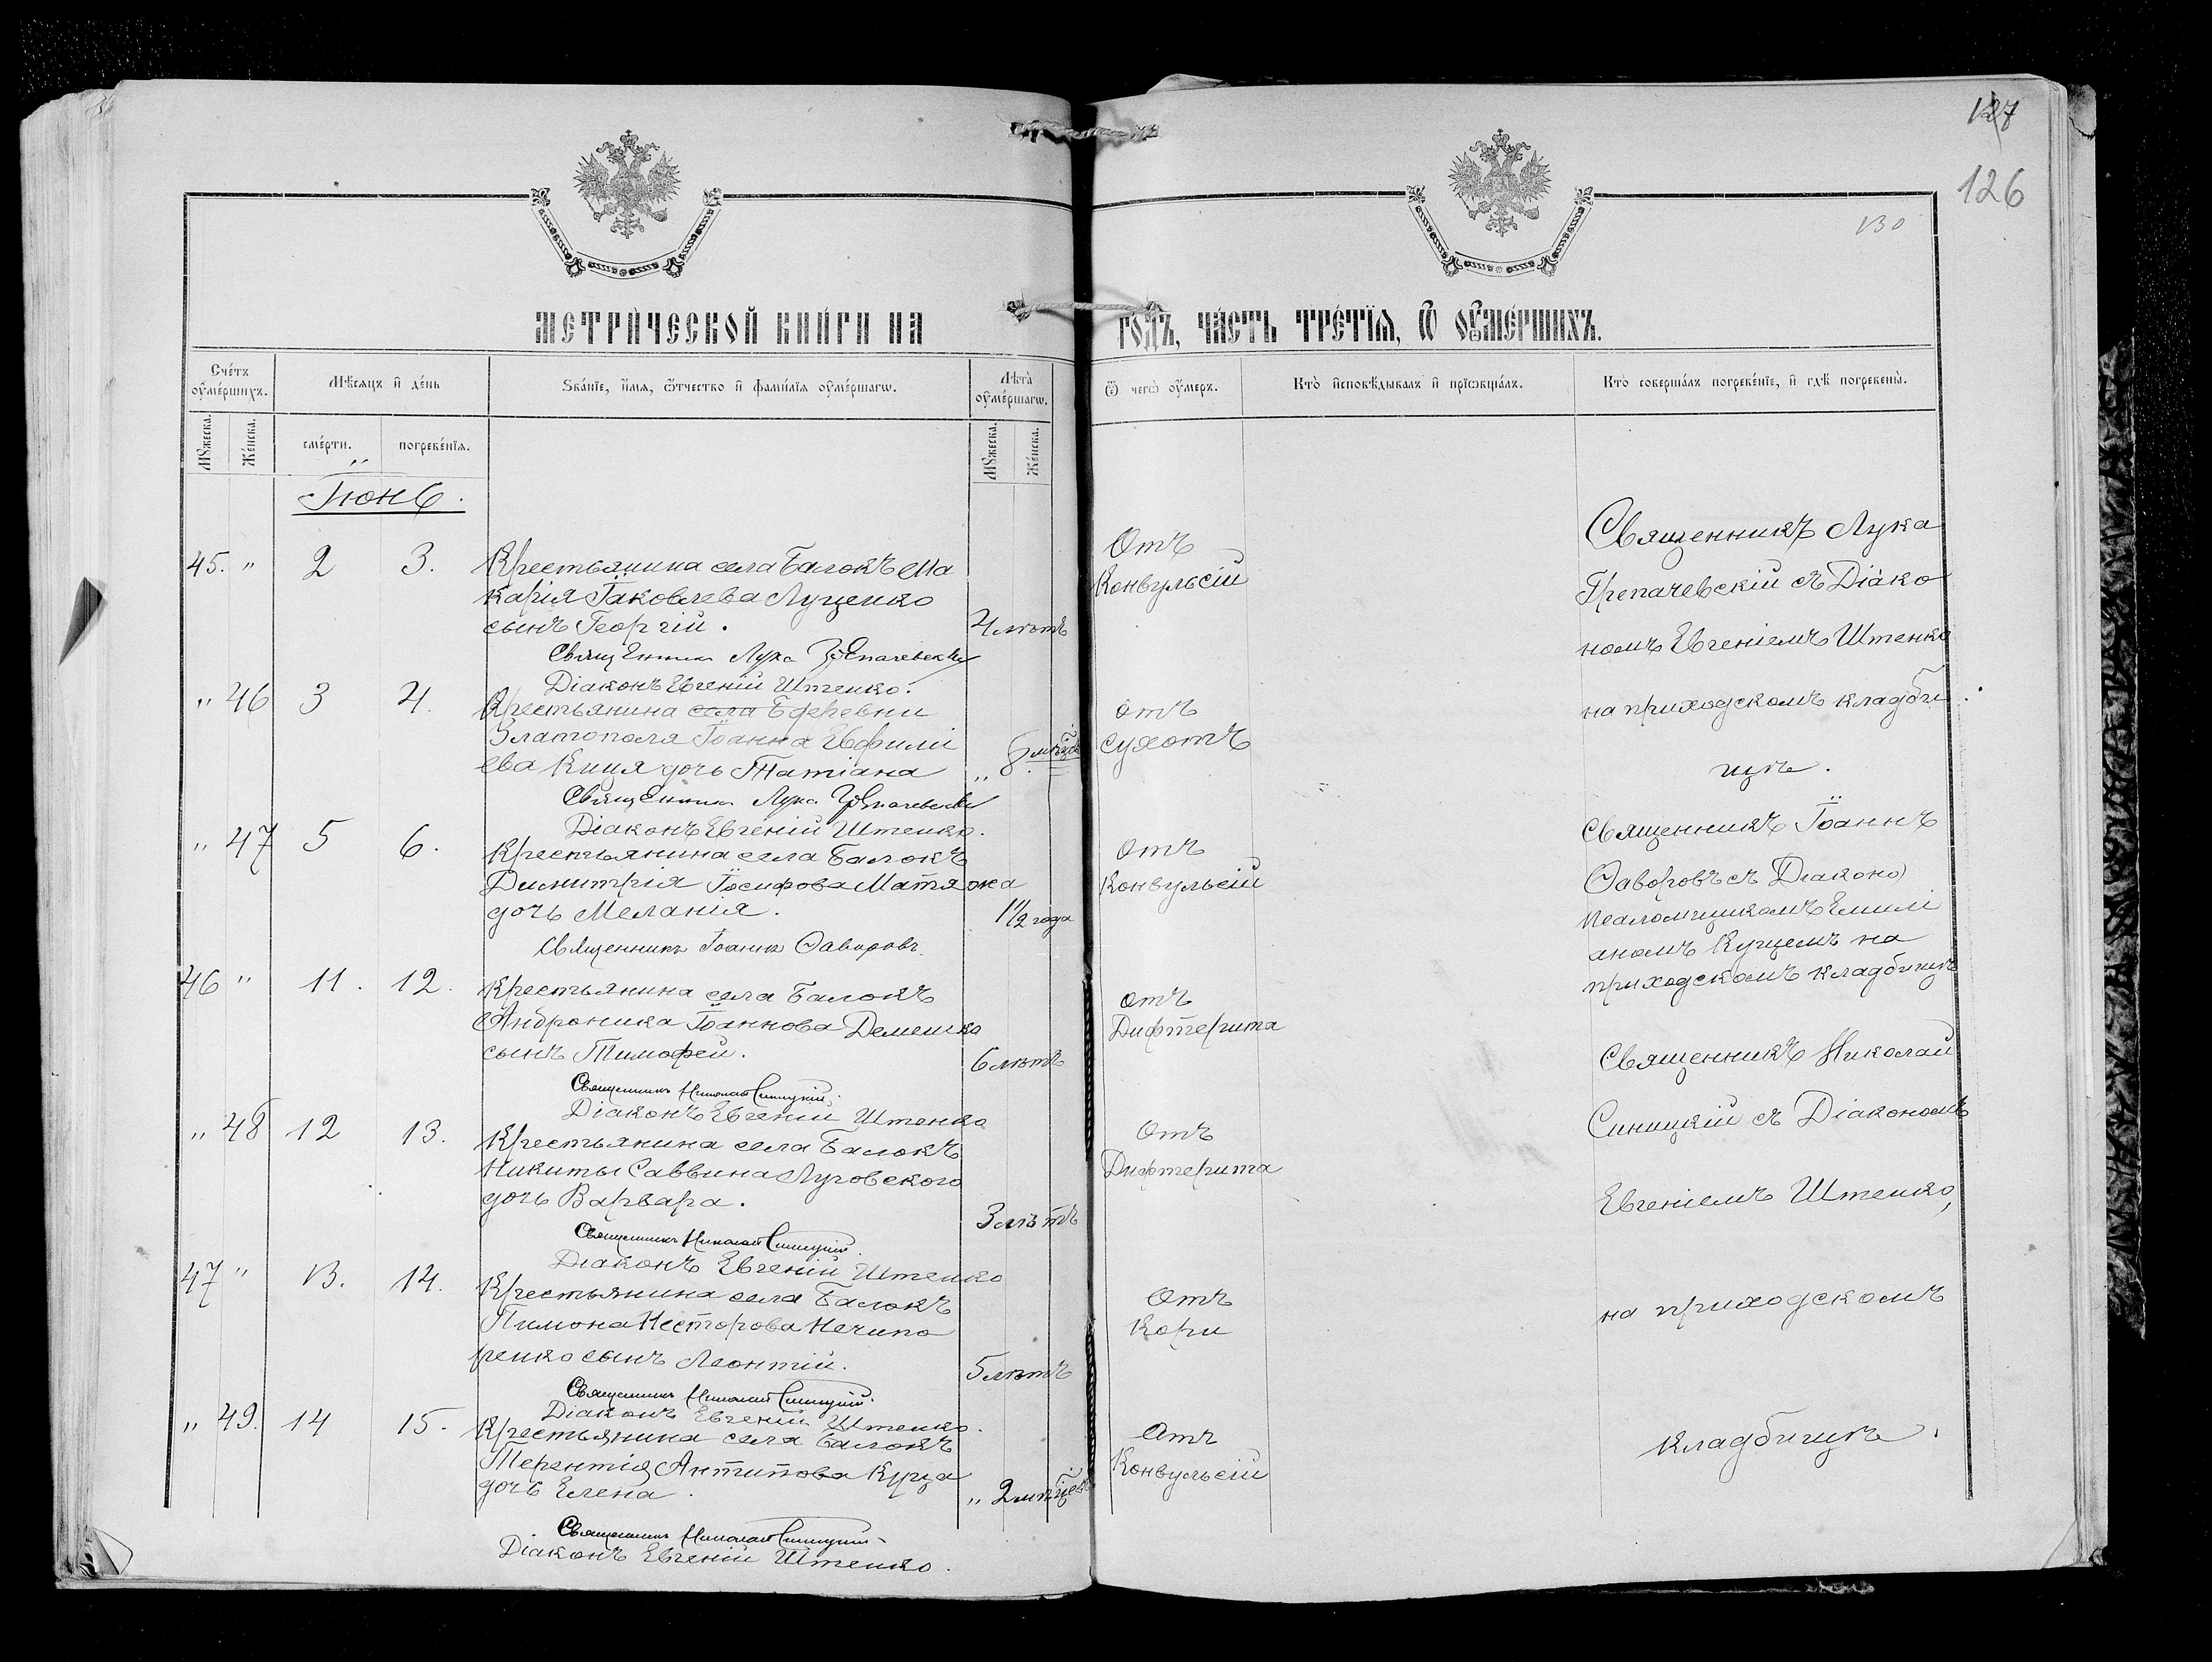 127
126
130
МЕТРИЧЕСКОЙ КНИГИ НА ГОДЪ, ЧАСТЬ ТРЕТІѦ, Ѿ ОУМЕРШИХЪ.
Счетъ оумершихъ.
Мѣсяцъ и день
Званіе, имя, ѿчество и фамилія оумершагѡ.
Лѣта оумершагѡ.
Ѿ чегѡ оумеръ.
Кто исповѣдывалъ и пріѡбщалъ.
Кто совершалъ погребеніе, и гдѣ погребены.
Мужеска. Женска. смерти. погребенія. Мужеска. Женска.
Іюнь.
45. " 2 3. Крестьянина села Балокъ Ма
карія Іаковлева Луценко
сынъ Георгій. 4 лѣтъ
Отъ
Конвульсій
Священникъ Лука
Діаконъ Евгеній Штенко.
" 46 3 4. Крестьянина села Б деревни
Златополя Іоанна Евфимі
ева Куця дочь Татіана " 8 мѣсцевъ
отъ
сухотъ
Священникъ Лука
Діаконъ Евгеній Штенко.
Священникъ Лука
Трепачевскій съ Діако
номъ Евгеніемъ Штенко
на приходскомъ кладби
щѣ.
" 47 5 6. Крестьянина села Балокъ
Димитрія Іосифова Матяжа
дочь Меланія. 1 1/2 года
отъ
Конвульсій
Священникъ Іоаннъ Ѳаворовъ.
Священникъ Іоаннъ
Ѳаворовъ съ Діаконо)
псаломщикомъ Емилі
аномъ Куццемъ на
приходскомъ кладбищѣ
46 " 11. 12. Крестьянина села Балокъ
Андроника Іоаннова Демешко
сынъ Тимофей. 6 лѣтъ
отъ
Дифтерита
Священникъ Николай Синицкій.
Діаконъ Евгеній Штенко
" 48 12 13. Крестьянина села Балокъ
Никиты Саввина Луговского
дочь Варвара. 3 лѣтъ
Отъ
Дифтерита
Священникъ Николай Синицкій.
Діаконъ Евгеній Штенко
47 " 13. 14. Крестьянина села Балокъ
Пимона Несторова Нечипо
ренко сынъ Леонтій. 5 лѣтъ
Отъ
Кори
Священникъ Николай Синицкій.
Діаконъ Евгеній Штенко.
" 49. 14 15. Крестьянина села Балокъ
Терентія Антипова Куца
дочь Елена. " 2 мѣсцевъ
Отъ
Конвульсій
Священникъ Николай Синицкій
Діаконъ Евгеній Штенко.
Священникъ Николай
Синицкій съ Діакономъ
Евгеніемъ Штенко,
на приходскомъ
кладбищѣ.